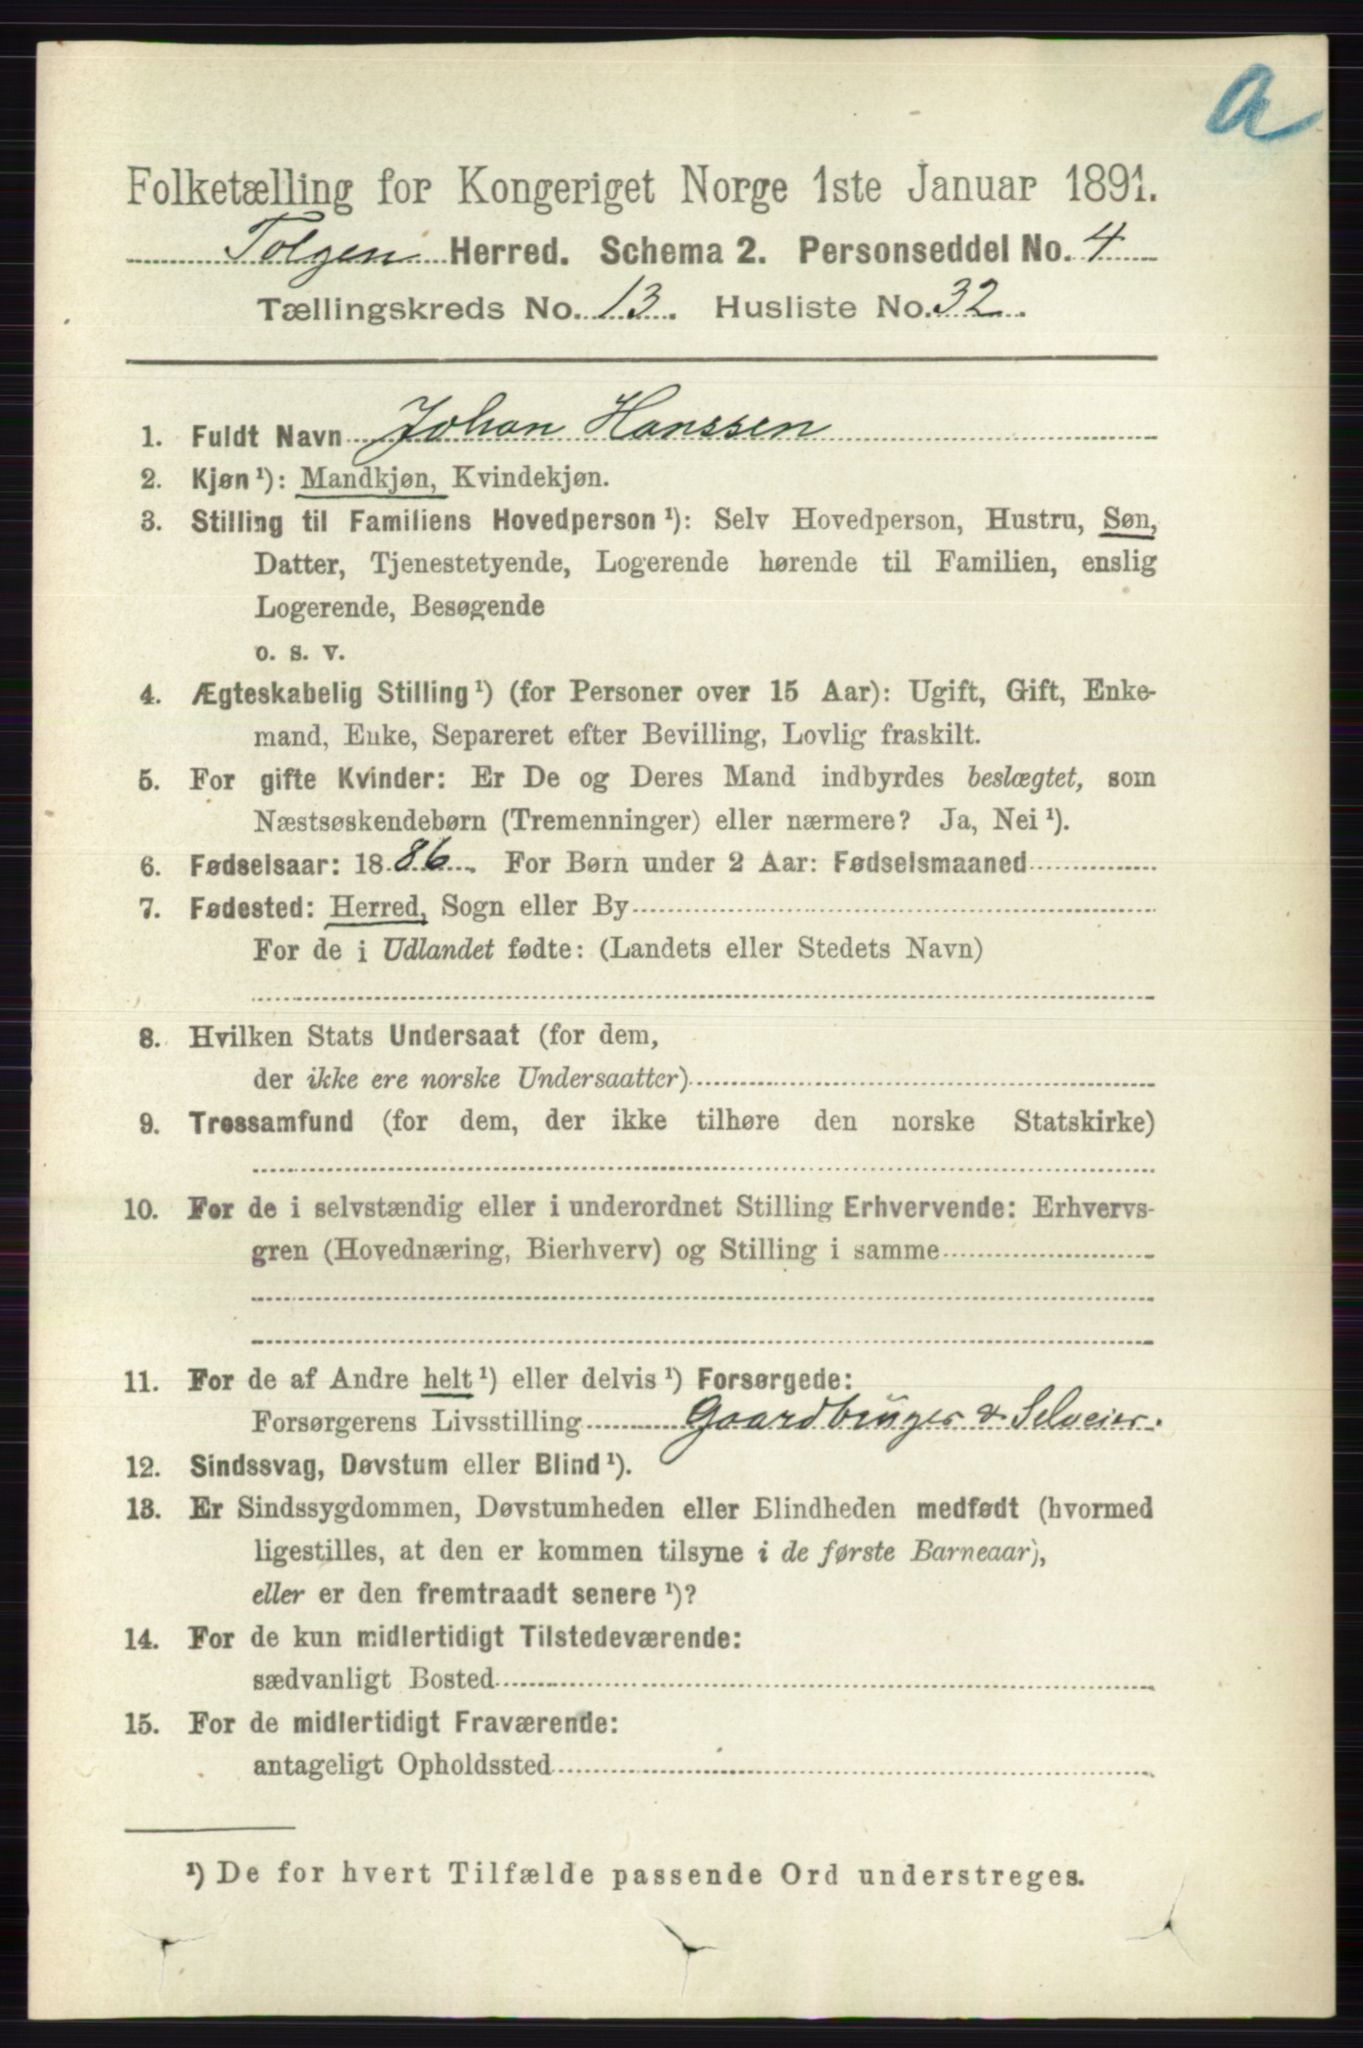 a
Folketælling for Kongeriget Norge 1ste Januar 1891.
Tolgen Herred. Schema 2. Personseddel No. 4
Tællingskreds No. 13. Husliste No. 32.
1. Fuldt Navn Johan Hanssen
2. Kjøn¹): Mandkjøn, Kvindekjøn.
3. Stilling til Familiens Hovedperson¹): Selv Hovedperson, Hustru, Søn,
Datter, Tjenestetyende, Logerende hørende til Familien, enslig
Logerende, Besøgende
o. s. v.
4. Ægteskabelig Stilling¹) (for Personer over 15 Aar): Ugift, Gift, Enke-
mand, Enke, Separeret efter Bevilling, Lovlig fraskilt.
5. For gifte Kvinder: Er De og Deres Mand indbyrdes beslægtet, som
Næstsøskendebørn (Tremenninger) eller nærmere? Ja, Nei¹).
6. Fødselsaar: 1886. For Børn under 2 Aar: Fødselsmaaned
7. Fødested: Herred, Sogn eller By
For de i Udlandet fødte: (Landets eller Stedets Navn)
8. Hvilken Stats Undersaat (for dem,
der ikke ere norske Undersaatter)
9. Trossamfund (for dem, der ikke tilhøre den norske Statskirke)
10. For de i selvstændig eller i underordnet Stilling Erhvervende: Erhvervs-
gren (Hovednæring, Bierhverv) og Stilling i samme
11. For de af Andre helt¹) eller delvis¹) Forsørgede:
Forsørgerens Livsstilling Gaardbruger & Selveier.
12. Sindssvag, Døvstum eller Blind¹).
13. Er Sindssygdommen, Døvstumheden eller Blindheden medfødt (hvormed
ligestilles, at den er kommen tilsyne i de første Barneaar),
eller er den fremtraadt senere¹)?
14. For de kun midlertidigt Tilstedeværende:
sædvanligt Bosted
15. For de midlertidigt Fraværende:
antageligt Opholdssted
¹) De for hvert Tilfælde passende Ord understreges.